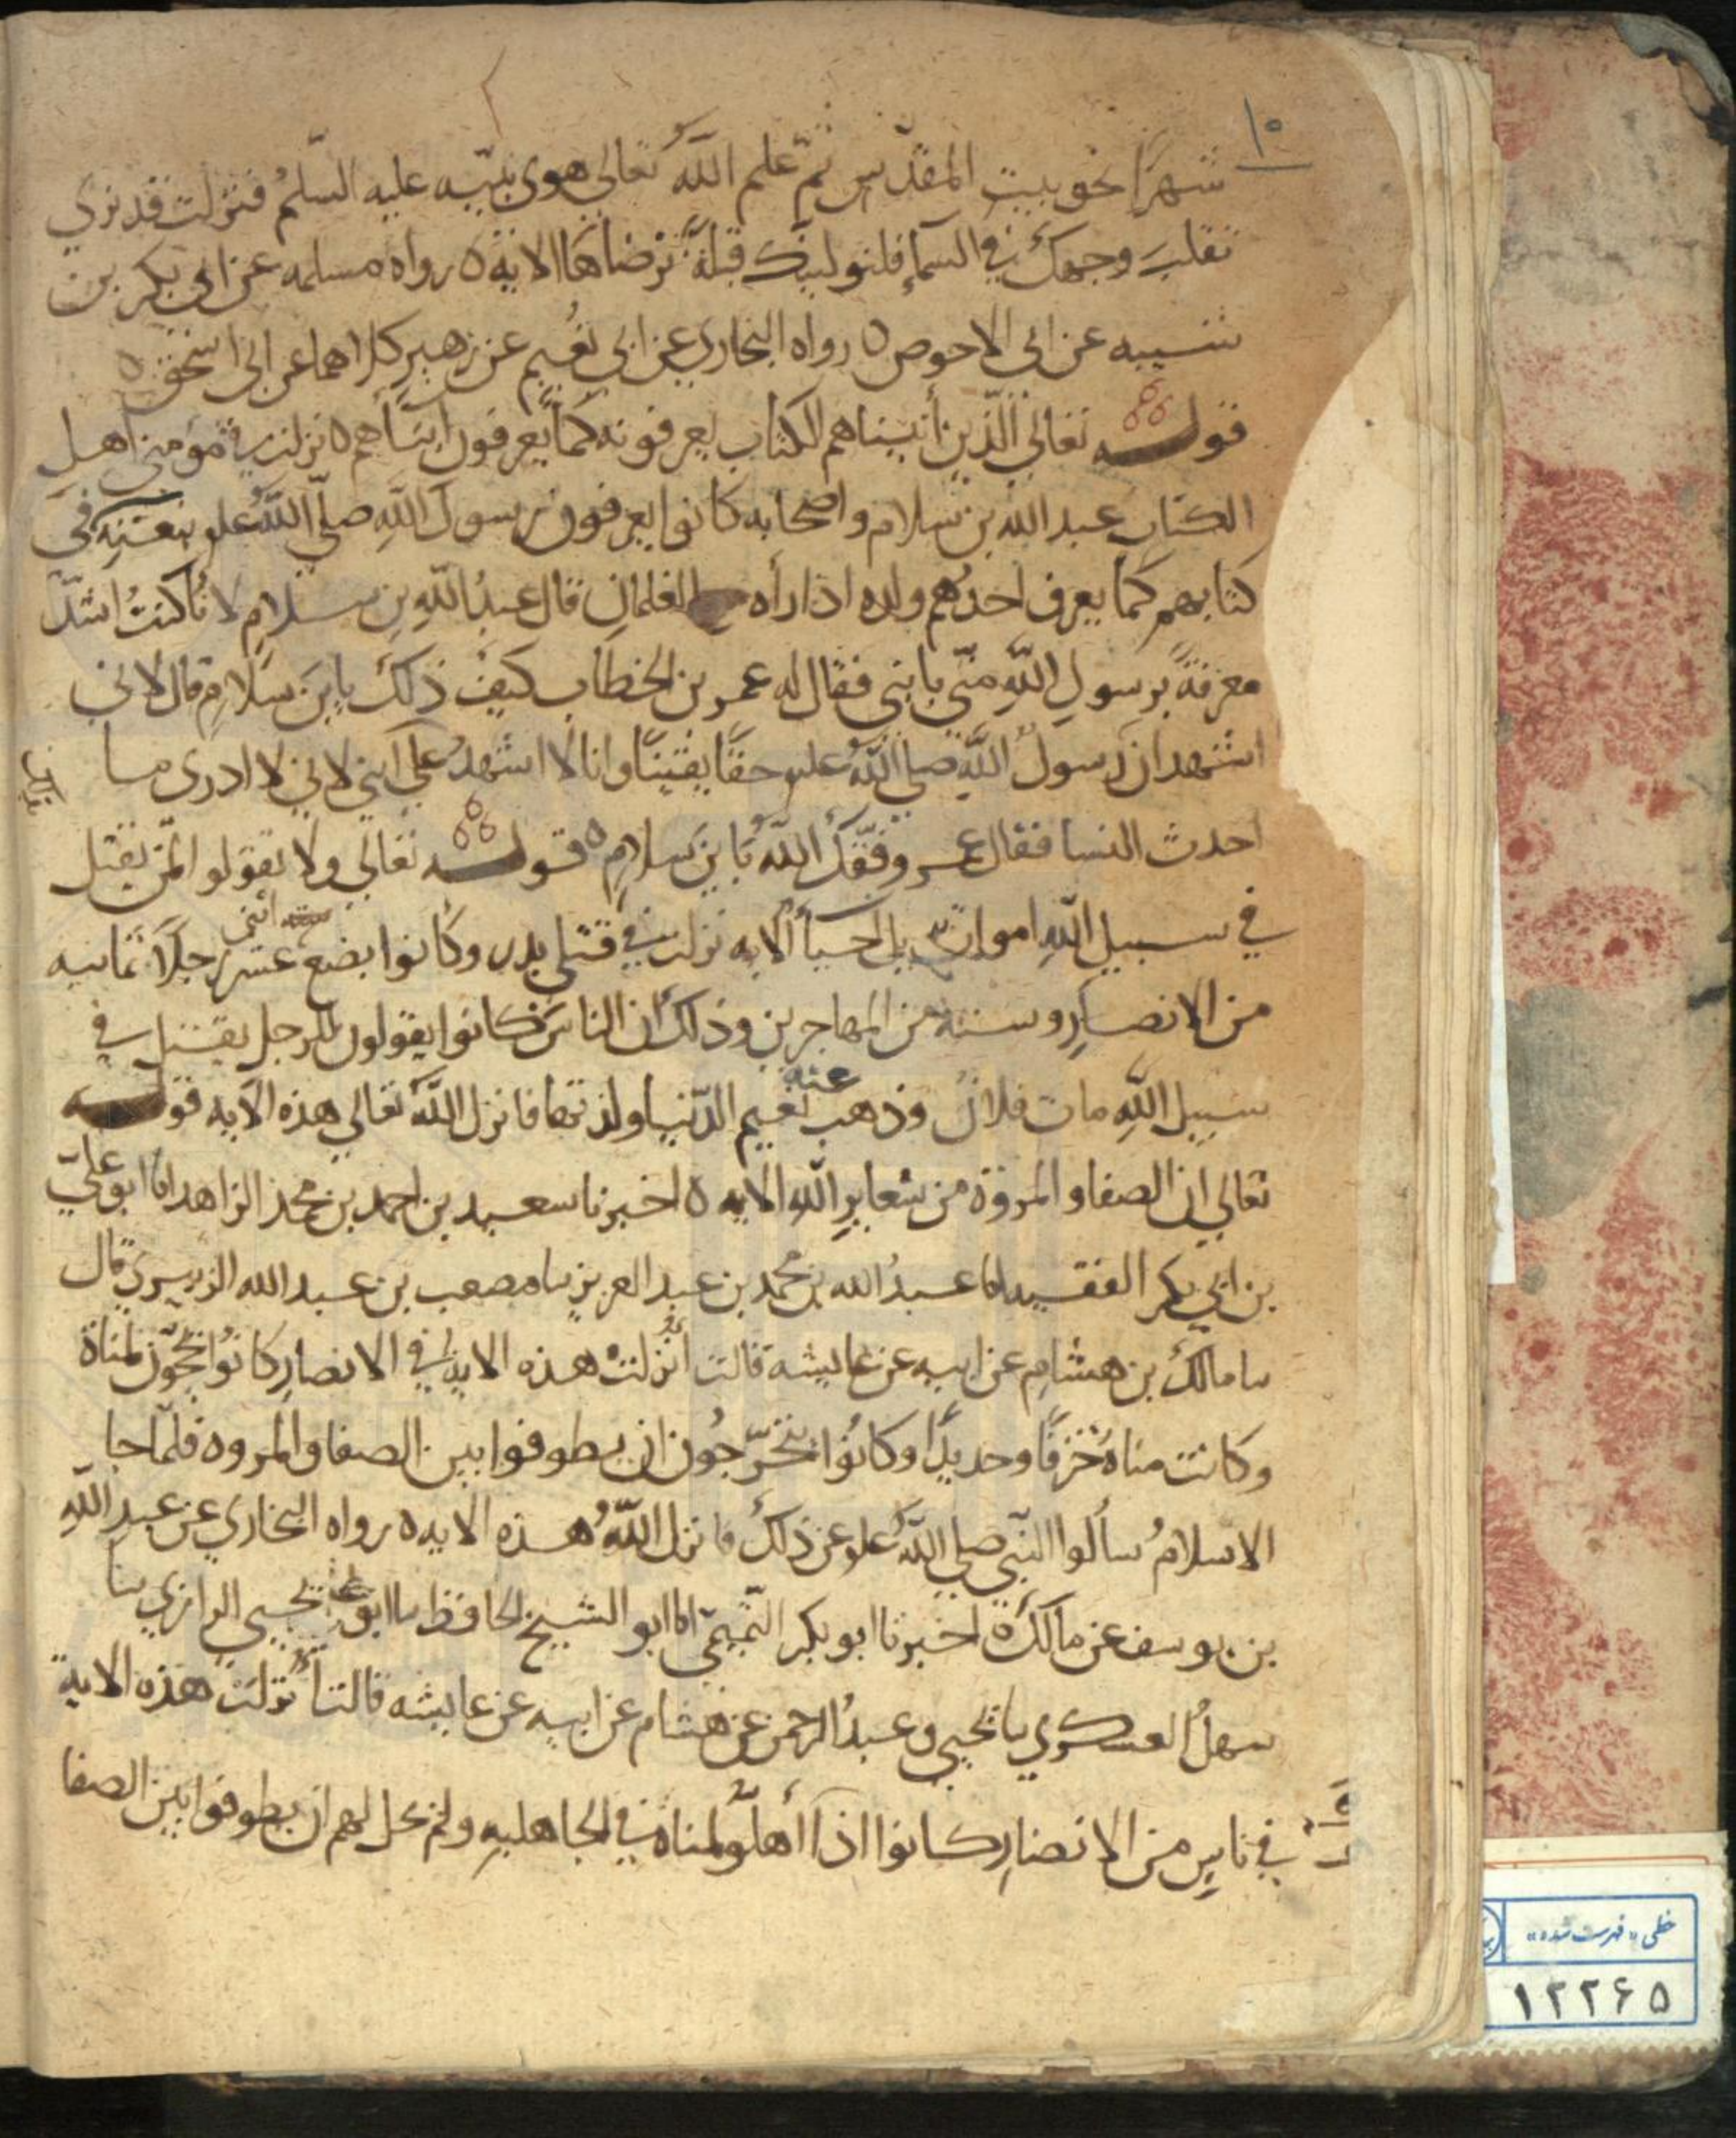 ١٥
شهرًا نحو بيت المقدس ثم علم الله تعالي هوى نبيّه عليه السلم فنزلت قد نري
تقلب وجهك في السمإ فلنولينك قبلةً ترضاها الايه ٥ رواه مسلم عن ابي بكر بن
شيبه عن ابي الاحوص ٥ رواه البخاري عن ابي نعيم عن زهير كلاهما عن ابي اسحق ٥
قوله تعالي الذين أتيناهم الكتاب يعرفونه كما يعرفون ابناهم ٥ نزلت في مؤمني اهل
الكتاب عبد الله بن سلام واصحابه كانوا يعرفون رسول الله صلي الله علم بنعته في
كتابهم كما يعرف احدهم ولده اذا رأه مع الغلمان قال عبدُ اللهِ بنِ سلامٍ لأنا كنتُ اشدّ
معرفةً برسولِ اللهِ منّي بابني فقال له عمر بن الخطاب كيف ذلك يابن سلامٍ قال لاني
اشهد ان رسول الله صلي الله علم حقًا يقينًا وانا لا اشهد علي ابني لاني لا ادري ما
احدث النسا فقال عمر وفّقك اللهُ يابن سلامٍ ٥ قوله تعالي ولا تقولوا لمن يقتل
في سبيل اللهِ امواتٌ بل احيأ الايه نزلت في قتلى بدر وكانوا بضع عشر رجلًا ثمانيه
اثنى
من الانصارِ وسته من المهاجرين وذلك ان الناس كانوا يقولون للرجل يقتل في
سبيل اللهِ مات فلانٌ وذهب عنه نعيم الدّنيا ولذتها فانزل اللهُ تعالي هذه الآيه قوله
تعالي ان الصفا والمروة من شعايرِ اللهِ الايه ٥ اخبرنا سعيد بن احمد بن محمد الزاهد انا ابو عليّ
بن ابي بكر الفقيه انا عبدُ الله بن محمد بن عبد العزيز سا مصعب بن عبد الله الزبيري قال
سا مالك بن هشامٍ عن ابيه عن عايشه قالت أُنزلتْ هذه الايه في الانصارِ كانُوا يحجّون لمناة
وكانت مناة خزفًا وحديدًا وكانُوا يتحرّجُون ان يطوفوا بين الصفا والمروه فلمّا جا
الاسلامُ سألوا النّبي صلي اللهُ علم عن ذلك فانزل اللهُ هذه الايه ٥ رواه البخاري عن عبدِ اللهِ
بن يوسف عن مالك ٥ اخبرنا ابو بكر التميميّ انا ابو الشيخ الحافظ سا ابو يحيي الرازي سا
سهلُ العسكري سا يحيي وعبدُ الرحمن عن هشام عن ابيه عن عايشه قالت أُنزلت هذه الاية
في ناسٍ من الانصارِ كانوا اذا أهلّوا لمناة في الجاهليهِ ولم يحل لهم ان يطوفوا بين الصفا
خطی «فهرست شده»
۱۲۲۶۵